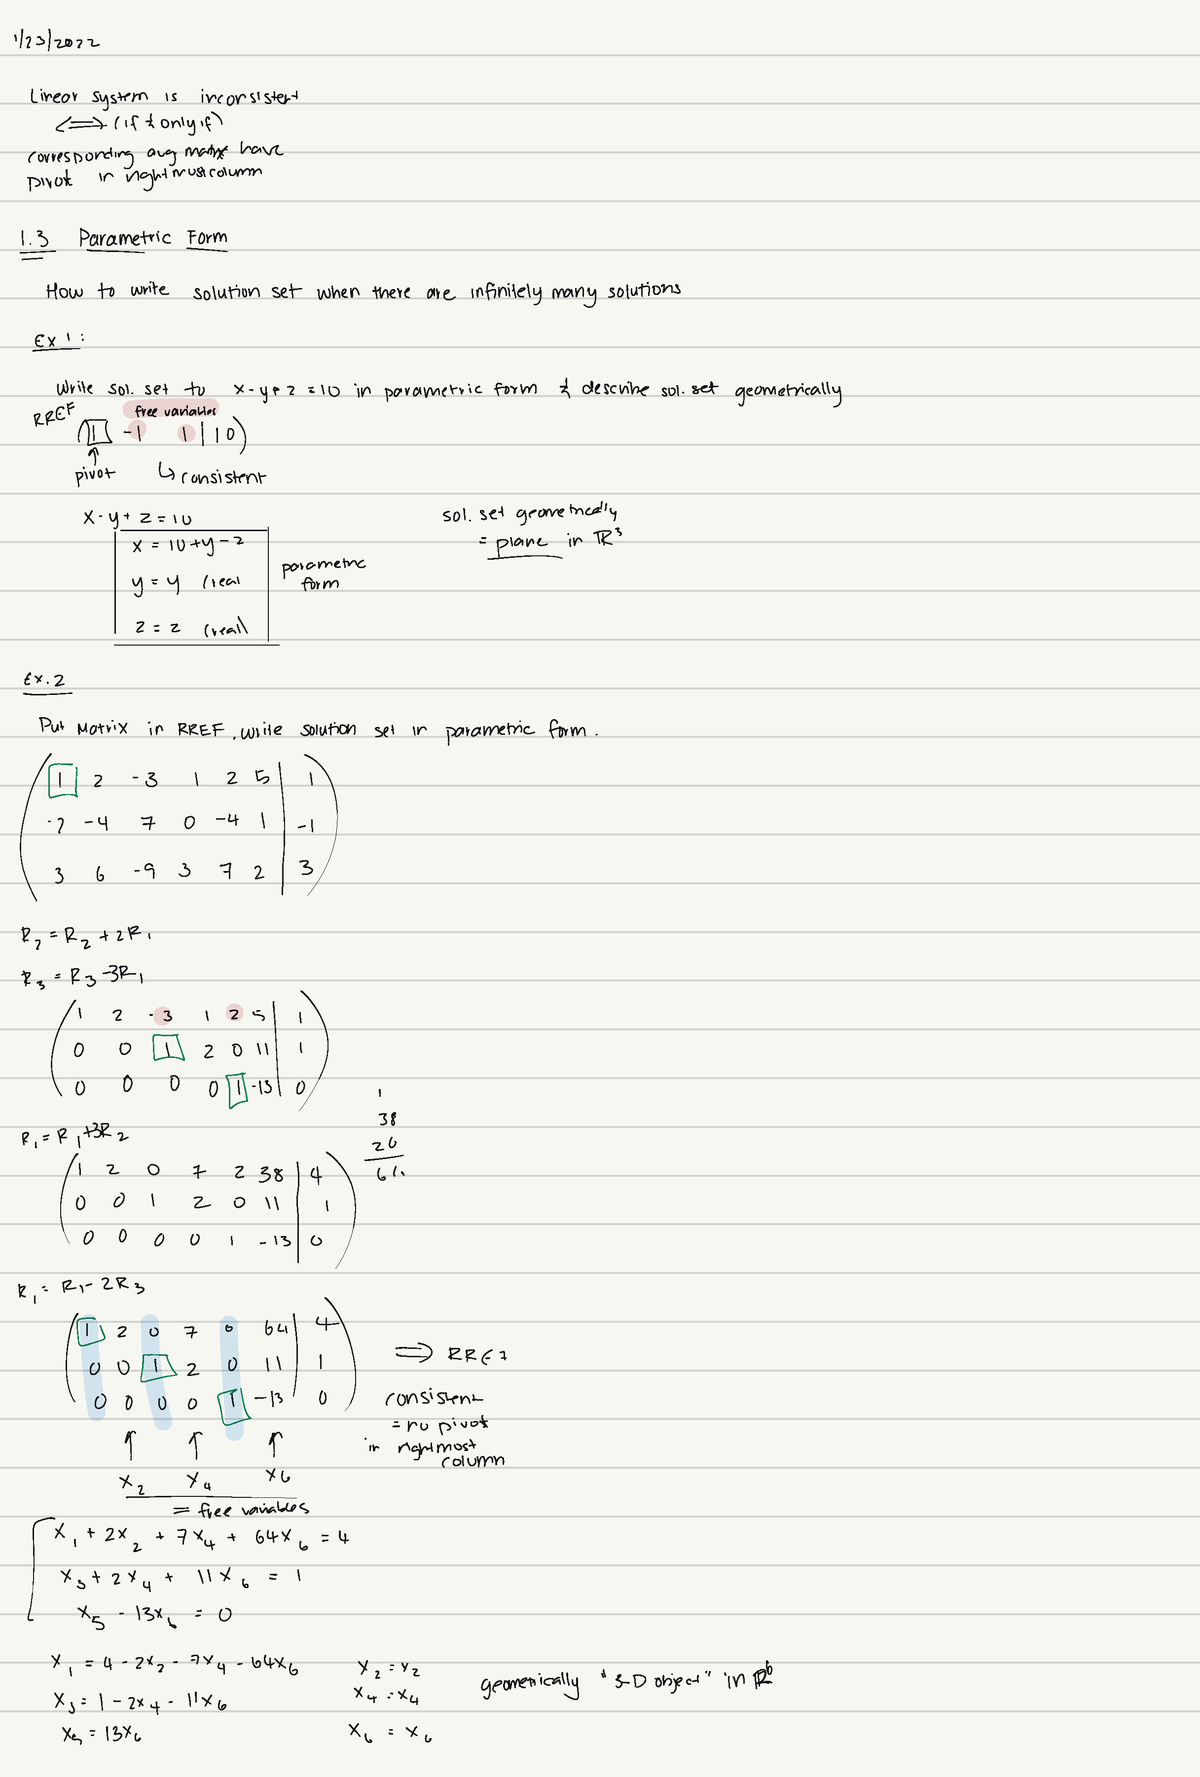 1/23/2022
Linear system is inconsistent
⟺ (if & only if)
corresponding aug matrix have
pivot in rightmost column
1.3 Parametric Form
How to write solution set when there are infinitely many solutions
Ex 1:
Write sol. set to x-y+z=10 in parametric form & describe sol. set geometrically
RREF free variables
(1 -1 1 | 10)
↑
pivot ↳ consistent
x-y+z=10
x = 10+y-z
y = y (real
z = z (real)
parametric
form
sol. set geometrically
= plane in ℝ³
Ex. 2
Put Matrix in RREF, write solution set in parametric form.
1 2 -3 1 2 5 | 1
-2 -4 7 0 -4 1 | -1
3 6 -9 3 7 2 | 3
R₂ = R₂ + 2R₁
R₃ = R₃ -3R₁
1 2 -3 1 2 5 | 1
0 0 1 2 0 11 | 1
0 0 0 0 1 -13 | 0
R₁ = R₁ +3R₂
1
38
26
64
1 2 0 7 2 38 | 4
0 0 1 2 0 11 | 1
0 0 0 0 1 -13 | 0
R₁ = R₁ - 2R₃
1 2 0 7 0 64 | 4
0 0 1 2 0 11 | 1
0 0 0 0 1 -13 | 0
⟹ RREF
consistent
= no pivot
in rightmost
column
↑ ↑ ↑
x₂ x₄ x₆
= free variables
x₁ + 2x₂ + 7x₄ + 64x₆ = 4
x₃ + 2x₄ + 11x₆ = 1
x₅ - 13x₆ = 0
x₁ = 4 - 2x₂ - 7x₄ - 64x₆ x₂ = x₂
x₃ = 1 - 2x₄ - 11x₆ x₄ = x₄
x₅ = 13x₆ x₆ = x₆
geometrically "3-D object" in ℝ⁶